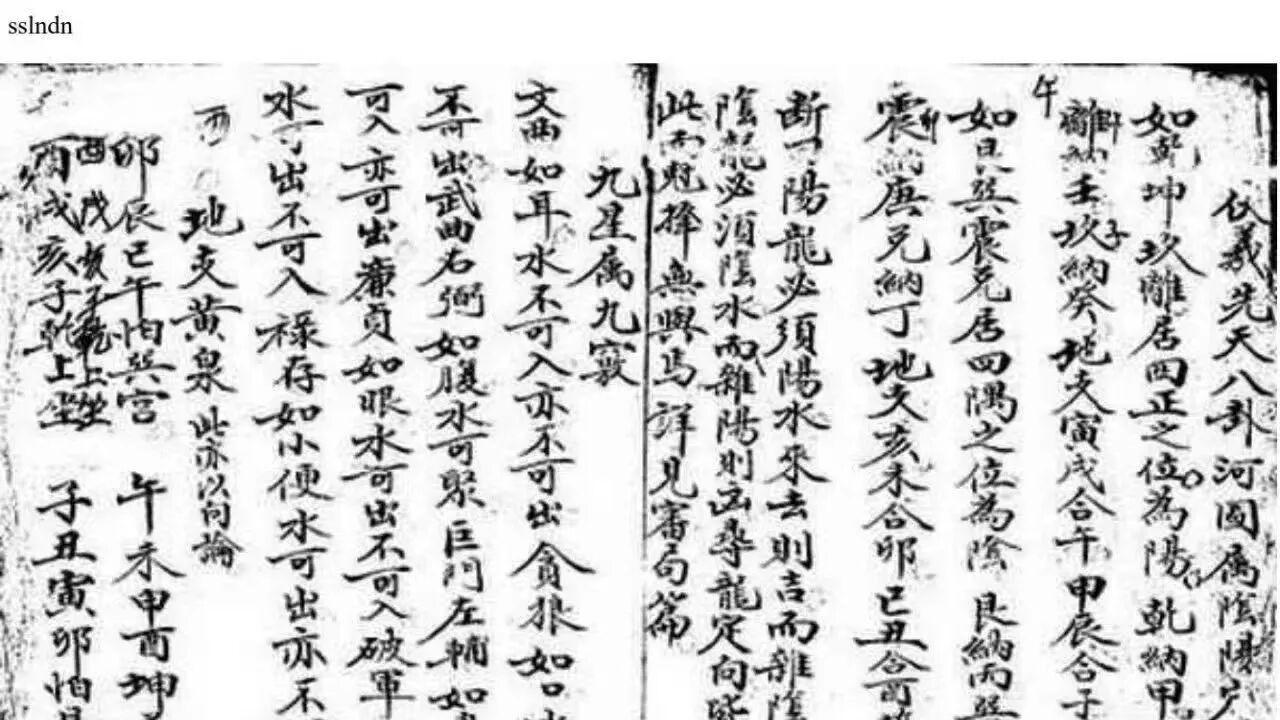 sslndn
伏羲先天八卦河圖属陰陽定
如乾坤坎離居四正之位為陽乾納甲
午
離納壬坎子納癸地支寅戌合午甲辰合子
如艮巽震兑居四隅之位為陰艮納丙巽
震卯納庚兑納丁地支亥未合卯巳丑合酉
断一陽龍必須陽水來去則吉而雜陰
陰龍必須陰水而雜陽則凶尋龍定向皆
此而尅擇無與焉詳見審句篇
九星属九竅
文曲如耳水不可入亦不可出貪狼如口
不可出武曲右弼如腹水可聚巨門左輔如
可入亦可出廉貞如眼水可出不可入破軍
水可出不可入祿存如小便水可出亦不
地支黄泉此亦以向論
卯辰巳午怕巽宫 午未申酉坤
酉戌亥子乾上坐
酉戌亥子乾上坐 子丑寅卯怕